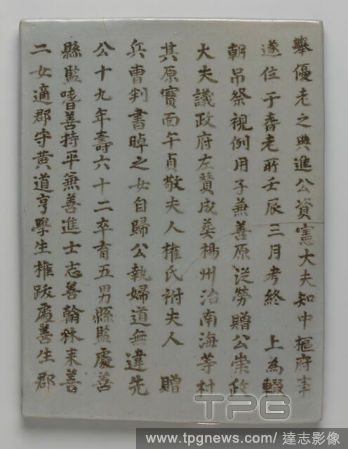 舉優老之典進公資憲大夫知中樞府事
遂位于耆老所壬辰三月考終 上為輟
朝吊祭視例用子兼善原從勞贈公崇政
大夫議政府左贊成葬楊州治南海等村
其原實面午貞敬夫人權氏祔夫人 贈
兵曹判書晬之女自歸公執婦道無違先
公十九年壽六十二卒育五男縣監處善
縣監嗜善持平兼善進士志善翰林來善
二女適郡守黃道亨學生權跋處善生郡
TPG
www.tpgnews.com/達志影像